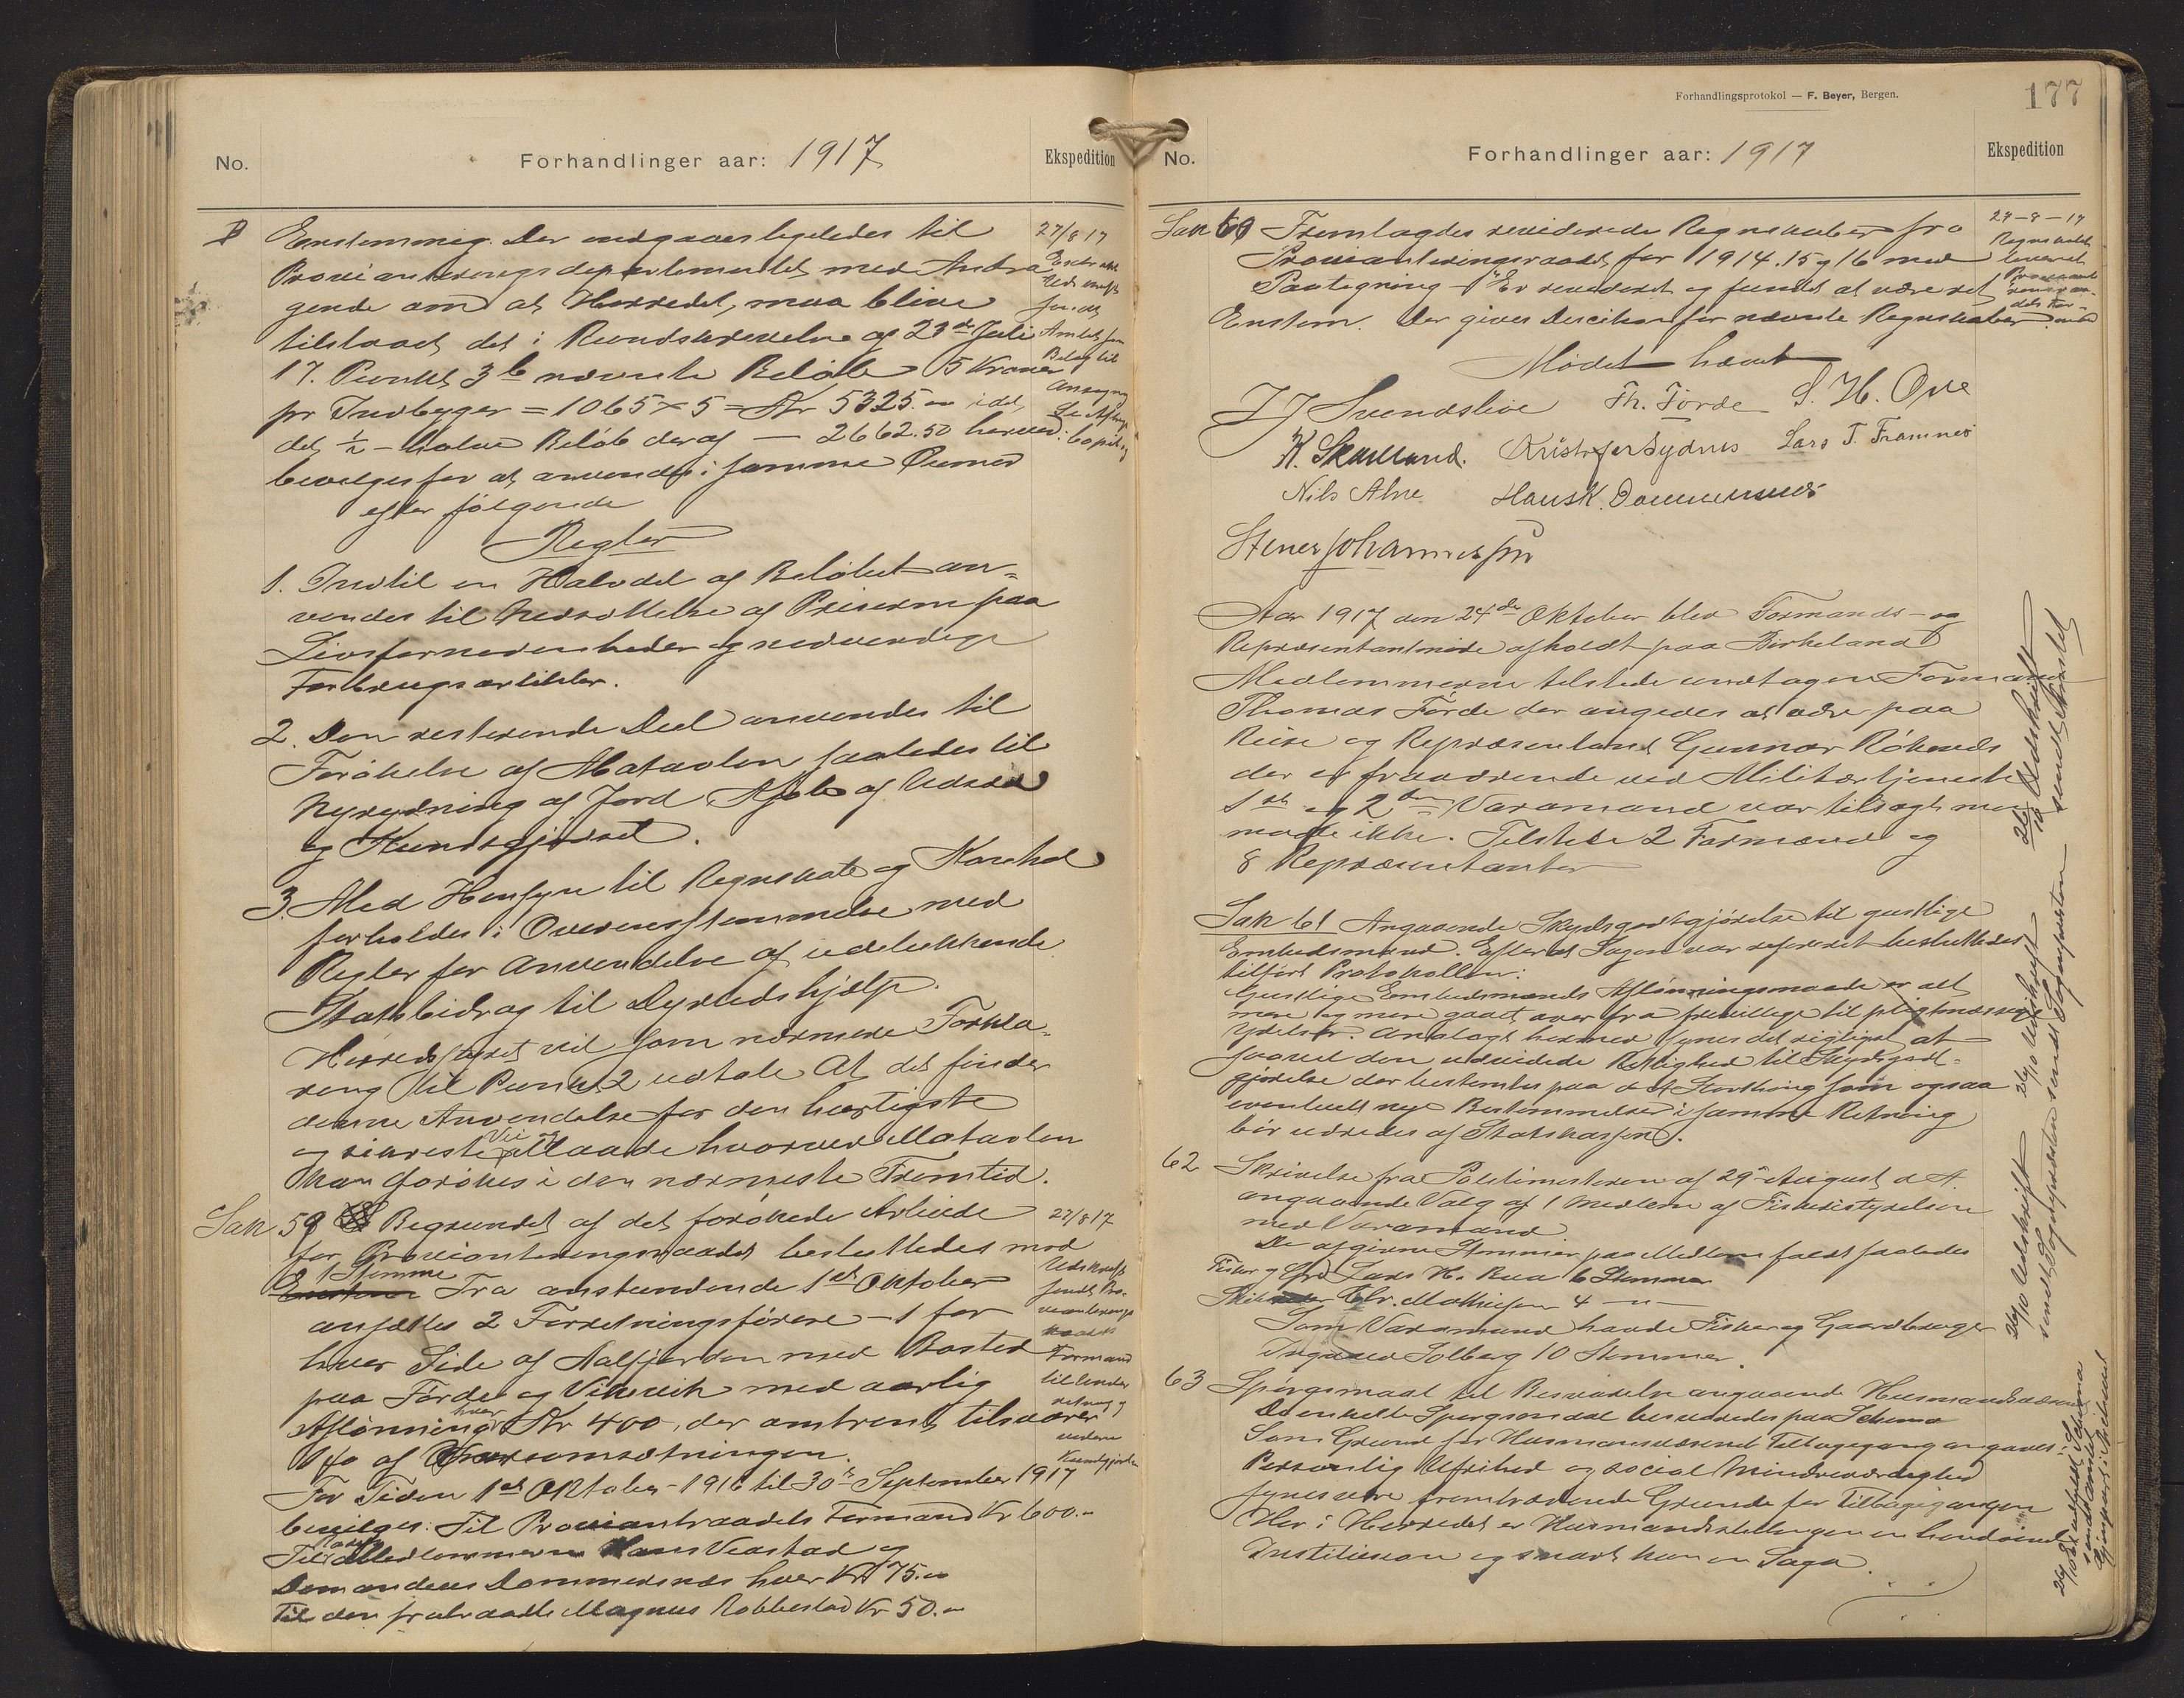 No.
Forhandlinger aar: 1917
Ekspedition
Enstemmig. Der andgaaes ligeledes til
Provianteringsdepartementet med Andra
gende om at Herredet maa blive
tilstaaet det i Rundskrivelse af 23de Juli
17. Punkt 3 b nævnte Beløb 5 Kroner
pr Indbyger = 1065 × 5 = Kr 5325.- idet
det ½ - halve Beløb deraf — 2662.50 herved
bevilges for at anvendes i samme Øiemed
efter følgende
Regler
1. Indtil en Halvdel af Beløbet an=
vendes til Nedsættelse af Priserne paa
Livsfornødenheder og nødvendige
Forbrugsartikler.
2. Den resterende Deel anvendes til
Forøkelse af Matavlen saaledes til
Nyrydning af Jord Kjøb af Udsæd
og Kunstgjødsel.
3. Med Hensyn til Regnskab og Kontrol
forholdes i Overensstemmelse med
Regler for Anvendelse af udelukkende
Statsbidrag til Dyrtidshjælp.
Herredsstyret vil som nærmere Forkla-
ring til Punkt 2 udtale At det finder
denne Anvendelse for den hurtigste
og sikreste Vei og Maade hvorved Matavlen
kan forøkes i den nærmeste Fremtid.
Sak 59 Begrundet af det forøkede Arbeide
for Provianteringsraadet besluttedes mod
1 Stemme Fra anstundende 1st Oktober
ansættes 2 Forretningsførere - 1 for
hver Side af Aalfjorden med Bosted
paa Førde og Vikevik med aarlig
Aflønning hver Kr 400, der omtrent tilsvarer
1 % af Vareomsætningen.
For Tiden 1st Oktober 1916 til 30te September 1917
bevilges: Til Proviantraadets Formand Kr 600.-
Til Medlemmerne Hans Veastad og
Domandeus Dommersnæs hver Kr 75.-
Til den fratraadte Magnus Robbestad Kr 50.-
27/8 17
Udskrift
sendt
Amtet som
Bilag til
Ansøgning
27/8 17
Udskrift
sendt Pro-
vianterings
raadets
Formand
til Under
retning og
videre
Kundgjørelse
Forhandlingsprotokol — F. Beyer, Bergen.
177
No.
Forhandlinger aar: 1917
Ekspedition
Sak 60 Fremlagdes reviderede Regnskaber fra
Provianteringsraadet for 1914. 15 og 16 med
Paategning - "Er revideret og fundet at være ret
Enstem. Der gives Decition for nævnte Regnskaber
27-8-17
Regnskabet
leveret
Mødet hævet
J J Svendsbøe Th. Førde S. H. Øve
K. Skulland. Kristofer Sydnes Lars T. Framnes
Nils Alne Hans K. Dommersnes
Stener Johannessen
Aar 1917 den 24de Oktober blev Formands- og
Repræsentantmøde afholdt paa Birkeland
Medlemmerne tilstede undtagen Formand
Thomas Førde der angives at være paa
Reise og Repræsentant Gunnar Røkenes
der er fraværende ved Militærtjeneste
1ste og 2den Varamand var tilsagt men
mødte ikke. Tilstede 2 Formænd og
8 Repræsentanter
Sak 61 Angaaende Skydsgodtgjørelse til geistlige
Embedsmænd. Efter at Sagen var refereret besluttedes
tilført Protokollen:
Geistlige Embedsmænds Aflønningsmaade er alt
mere og mere gaaet over fra frivillige til pligtmæssige
Ydelser. Analogt hermed synes det rigtigst at
saavel den udvidede Rettighed til Skydsgodt-
gjørelse der bestemtes paa d A Storthing som ogsaa
eventuelt nye Bestemmelser i samme Retning
bør udredes af Statskassen.
62 Skrivelse fra Politimesteren af 29de August d A.
angaaende Valg af 1 Medlem af Fiskeristyrelsen
med Varamand
De afgivne Stemmer paa Medlem faldt saaledes
Fisker og Grd Lars H. Rua 6 Stemmer
Chr. Mathiesen 4 —"—
Som Varamand havde Fisker og Gaardbruger
Ingvald Solberg 10 Stemmer.
63 Spørgsmaal til Besvarelse angaaende Husmandsvæsenet
De enkelte Spørgsmaal besvaredes paa Schema
Som Grund for Husmandsvæsenets Tilbagegang angaves:
Personlig Ufrihed og social Mindreværdighed
synes være fremtrædende Grunde for Tilbagegangen
Her i Herredet er Husmandsstillingen en hendøende
Institusion og snart kun en Saga.
26/10 Udskrift
sendt Amtet
26/10 Udskrift
sendt Sogneprsten
26/10 Udskrift
26/10 Udfyldt Schema
sendt Amtet